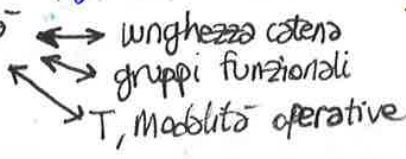 lunghezza catena
gruppi funzionali
T, Modalità operative